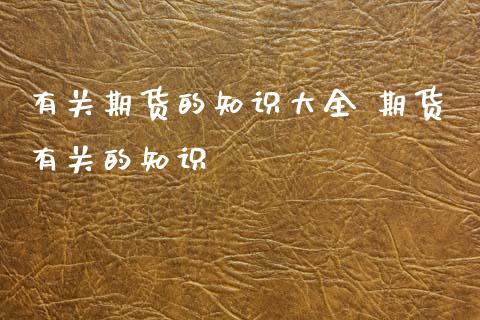 有关期货的知识大全 期货
有关的知识